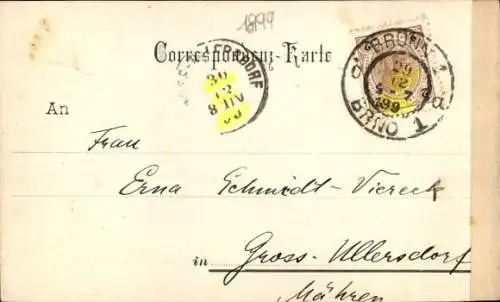 1899
Correspondenz-Karte
BRÜNN 1
BRNO 1
30
12
An
Frau
Erna Schmidt-Viereck
in Gross-Ullersdorf
Mähren